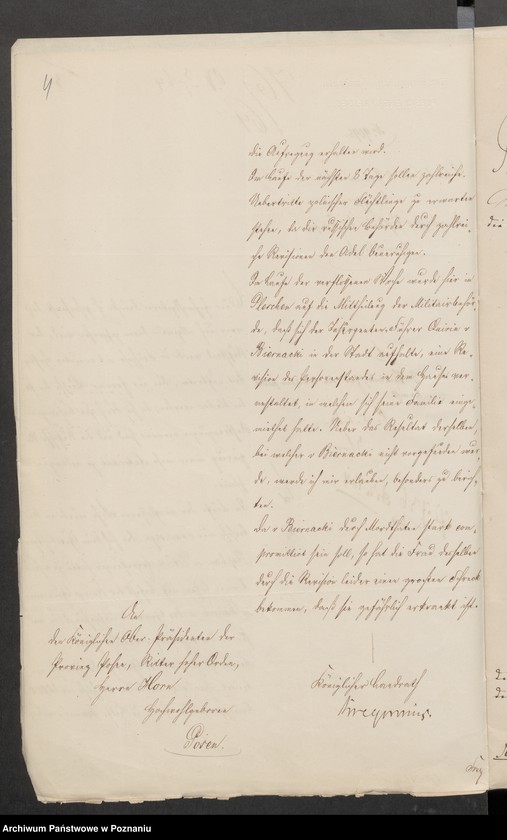 4
die Aufregung erhalten wird.
Im Laufe der nächsten 8 Tage sollen zahlreiche
Uebertritte polnischer Flüchtlinge zu erwarten
stehen, da die russischen Behörden durch zahlrei-
che Revisionen den Adel beunruhigen.
Im Laufe der verflossenen Woche wurde hier in
Pleschen auf die Mittheilung der Militairbehör-
de, daß sich der Insurgenten-Führer v
Biernacki in der Stadt aufhalte, eine Re-
vision des Personenstandes in dem Hause ver-
anstaltet, in welchem sich seine Familie einge-
miethet hatte. Ueber das Resultat derselben,
bei welcher v Biernacki nicht vorgefunden wur-
de, werde ich mir erlauben, besonders zu berich-
ten.
Da v Biernacki durch Mordthaten stark com-
promittirt sein soll, so hat die Frau desselben
durch die Revision leider einen großen Schreck
bekommen, daß sie gefährlich erkrankt ist.
An
den Königlichen Ober-Präsidenten der
Provinz Posen, Ritter hoher Orden,
Herrn Horn
Hochwohlgeboren
Posen.
Königlicher Landrath
Gregorovius.
Archiwum Państwowe w Poznaniu